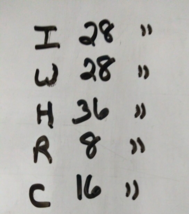 I 28 "
W 28 "
H 36 "
R 8 "
C 16 "